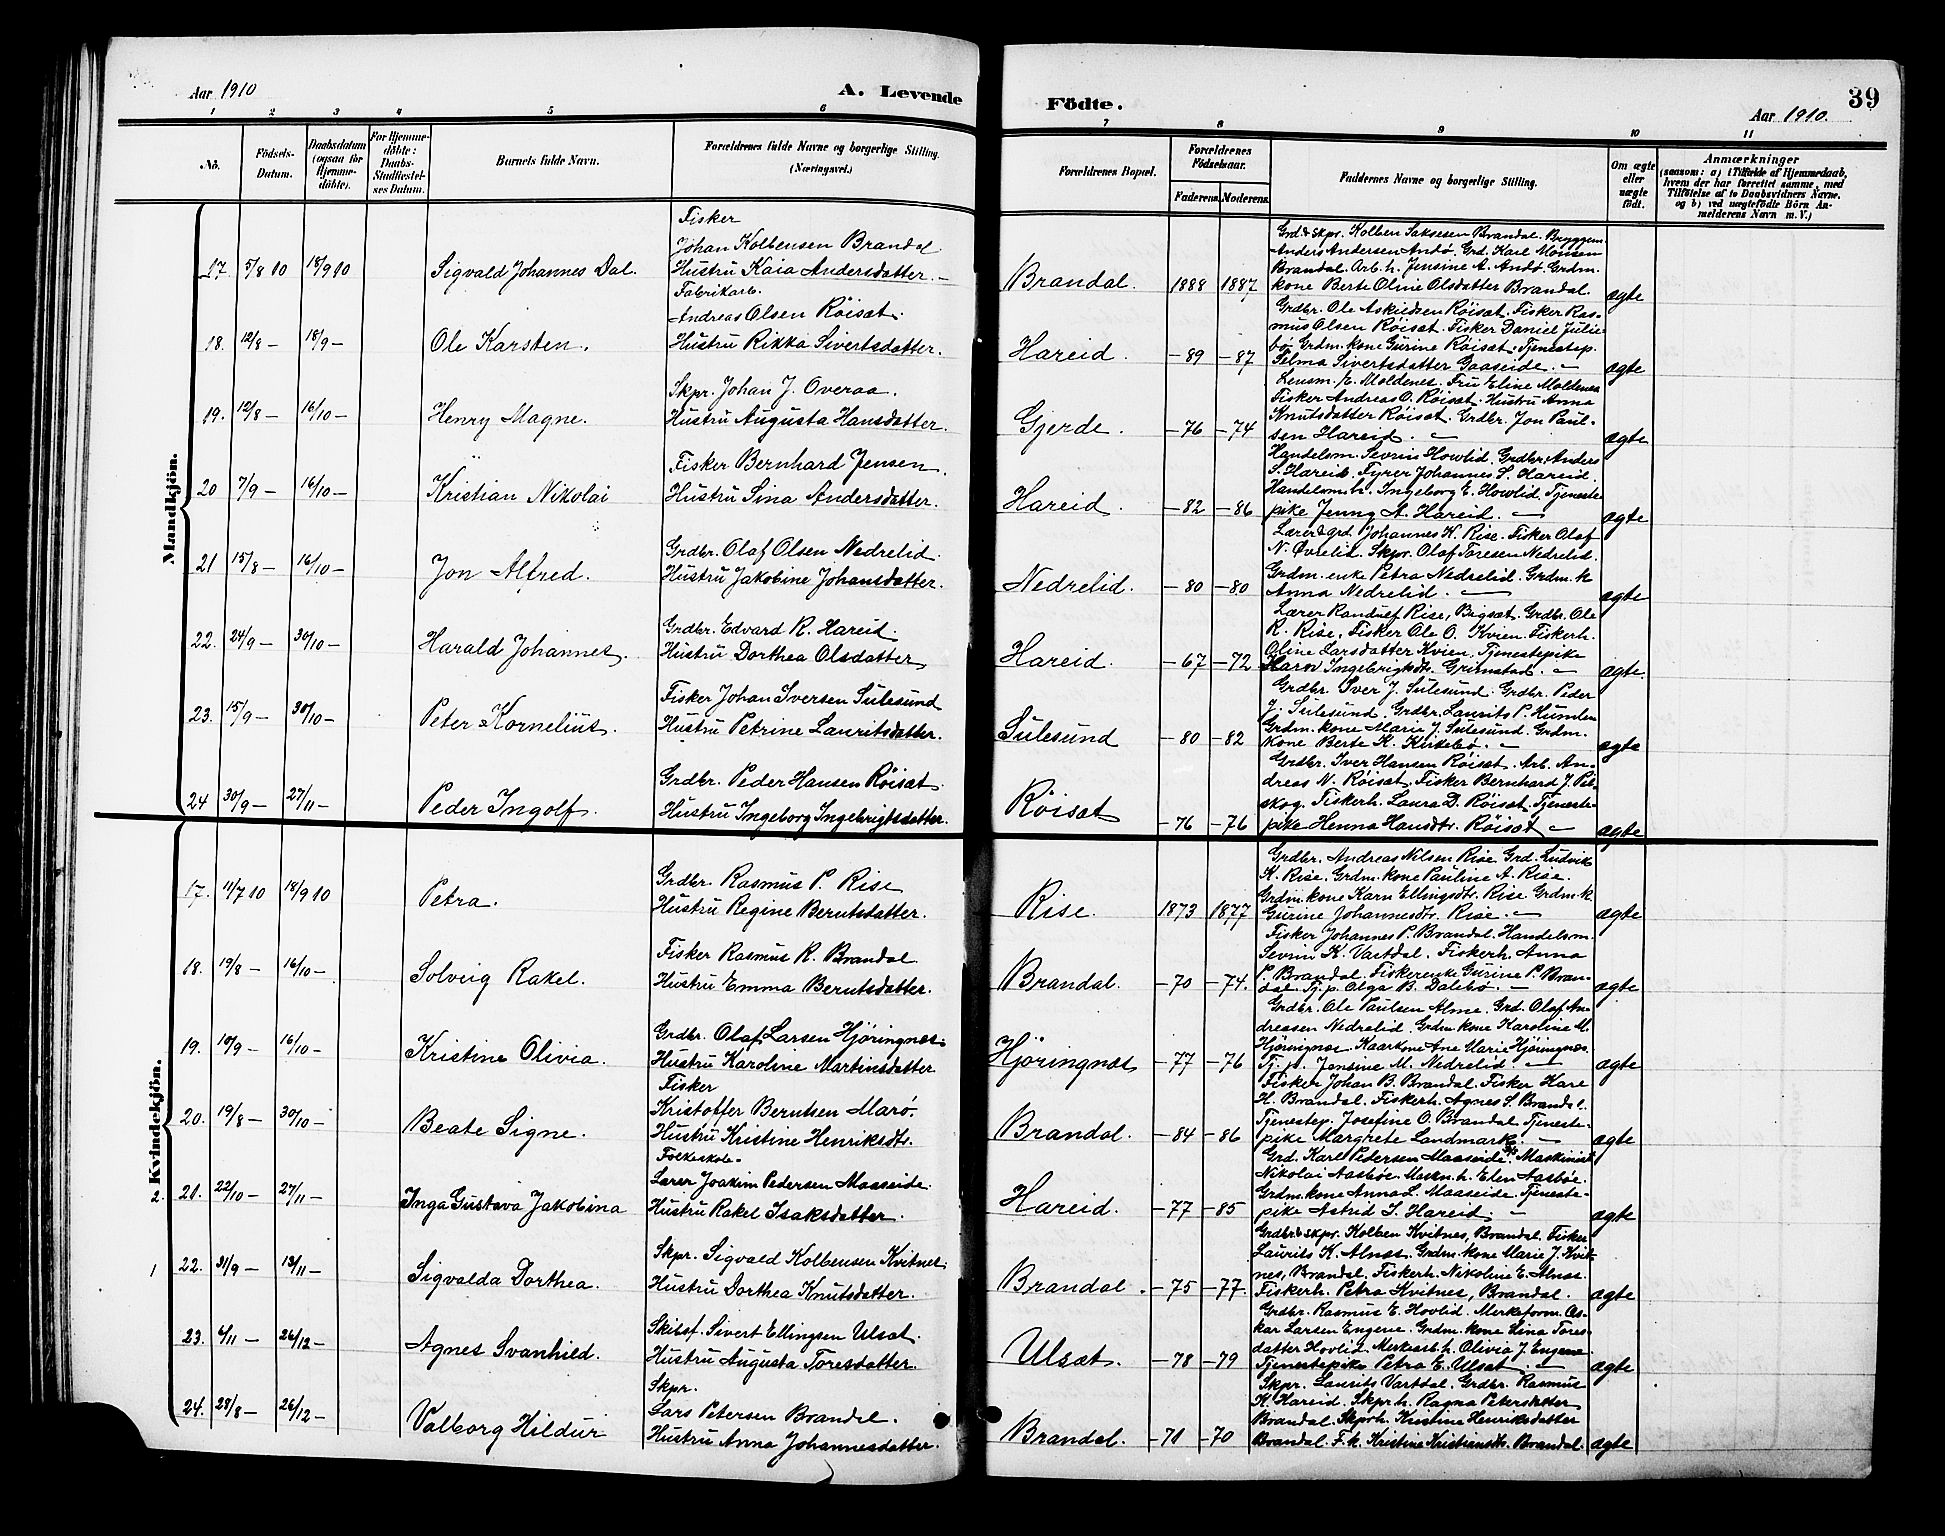 Aar 1910
A. Levende
Födte.
Aar 1910.
39
1 2 3 4 5 6
7 8 9 10 11
No.
Födsels-Datum.
Daabsdatum (ogsaa for Hjemme-döbte).
For Hjemme-döbte: Daabs-Stadfæstel-ses Datum.
Barnets fulde Navn.
Forældrenes fulde Navne og borgerlige Stilling.
(Næringsvei.)
Forældrenes Bopæl.
Forældrenes Födselsaar.
Faderens. Moderens.
Faddernes Navne og borgerlige Stilling.
Om ægte eller uægte födt.
Anmærkninger
(saasom: a) i Tilfælde af Hjemmedaab,
hvem der har forrettet samme, med
Tilföielse af to Daabsvidners Navne.
og b) ved uægtefödte Börn An-
melderens Navn m. V.)
Mandkjön.
Fisker
Johan Kolbensen Brandal
17. 5/8 10 18/9 10 Sigvald Johannes Dal. Hustru Kaia Andersdatter. –
Brandal. 1888 1887
Grd & Skpr. Kolben Saksesen Brandal. Byggem.
Anders Andersen Andø. Grd. Karl Monsen
Brandal. Arb. h. Jensine A. Andø. Grdm.
kone Berte Oline Olsdatter Brandal. ægte
Fabrikarb.
Andreas Olsen Röisæt.
18. 12/8 – 18/9 – Ole Karsten. Hustru Rikka Sivertsdatter.
Hareid. –89 –87
Grdbr. Ole Askildsen Röisæt. Fisker Ras-
mus Olsen Röisæt. Fisker Daniel Julie-
bø. Grdm. kone Gurine Röisæt. Tjenestep.
Selma Sivertsdatter Gaaseide. – ægte
Skpr. Johan J. Overaa.
19. 12/8 – 16/10 – Henry Magne. Hustru Augusta Hansdatter.
Gjerde. –76 –74
Lensm. E. Moldenes. Fru Eline Moldenes
Fisker Andreas O. Röisæt. Hustru Anna
Knutsdatter Röisæt. Grdbr. Jon Paul-
sen Hareid. – ægte
Fisker Bernhard Jensen.
20 7/9 – 16/10 – Kristian Nikolai Hustru Sina Andersdatter.
Hareid. –82 –86
Handelsm. Sevrin Hovlid. Grdbr. Anders
S. Hareid. Fyrer Johannes S. Hareid.
Handelsm. h. Ingeborg E. Hovlid. Tjeneste-
pike Jenny A. Hareid. – ægte
Grdbr. Olaf Olsen Nedrelid.
21 15/8 – 16/10 – Jon Alfred. Hustru Jakobine Johansdatter.
Nedrelid. –80 –80
Lærer & grd. Johannes K. Rise. Fisker Olaf
N. Øvrelid. Skpr. Olaf Toresen Nedrelid.
Grdm. enke Petra Nedrelid. Grdm. k
Anna Nedrelid. – ægte
Grdbr. Edvard R. Hareid.
22. 24/9 – 30/10 – Harald Johannes. Hustru Dorthea Olsdatter
Hareid. –67 –72
Lærer Randulf Rise, Bigsæt. Grdbr. Ole
R. Rise. Fisker Ole O. Kvien. Fiskerh.
Oline Larsdatter Kvien. Tjenestepike
Karn Ingebrigtsdtr. Grimstad. – ægte.
Fisker Johan Iversen Sulesund
23. 15/9 – 30/10 – Peter Kornelius. Hustru Petrine Lauritsdatter.
Sulesund –80 –82
Grdbr. Iver J. Sulesund. Grdbr. Peder
J. Sulesund. Grdbr. Laurits P. Humlen
Grdm. kone Marie J. Sulesund. Grdm.
kone Berte K. Kirkebö. – ægte
Grdbr. Peder Hansen Röisæt
24 30/9 – 27/11 – Peder Ingolf. Hustru Ingeborg Ingebrigtsdatter.
Röisæt –76 –76
Grdbr. Iver Hansen Röisæt. Arb. An-
dreas N. Röisæt. Fisker Bernhard J. Pil-
skog. Fiskerh. Laura D. Röisæt. Tjeneste-
pike Henna Hansdtr. Röisæt – ægte
Kvindekjön.
Grdbr. Rasmus P. Rise
17. 11/7 10 18/9 10 Petra. Hustru Regine Berntsdatter.
Rise. 1873 1877
Grdbr. Andreas Nilsen Rise. Grd. Ludvik
K. Rise. Grdm. kone Pauline A. Rise.
Grdm. kone Karn Ellingsdtr. Rise. Grdm. k.
Gurine Johannesdtr. Rise. – ægte
Fisker Rasmus R. Brandal
18. 19/8 – 16/10 – Solveig Rakel. Hustru Emma Berntsdatter.
Brandal. –70 –74.
Fisker Johannes P. Brandal. Handelsm.
Sevrin K. Vartdal. Fiskerh. Anna
P. Brandal. Fiskerenke Gurine P. Bran-
dal. Tj. p. Olga B. Dalebö. – ægte
Grdbr. Olaf Larsen Hjöringnæs.
19. 10/9 – 16/10 – Kristine Olivia. Hustru Karoline Martinsdatter
Hjöringnæs –77 –76
Grdbr. Ole Paulsen Alme. Grd. Olaf An-
dreasen Nedrelid. Grdm. kone Karoline M.
Hjöringnæs. Kaarkone Ane Marie Hjöringnæs.
Tj. p. Jensine M. Nedrelid. – ægte
Fisker
Kristoffer Berntsen Marö.
20. 19/8 – 30/10 – Beate Signe. Hustru Kristine Henriksdtr.
Brandal. –84 –86
Fisker Johan B. Brandal. Fisker Kare
H. Brandal. Fiskerh. Agnes S. Brandal.
Tjenestep. Josefine O. Brandal. Tjeneste-
pike Margrete Landmark. – ægte
Folkeskole-
Lærer Joakim Pedersen Maaseide.
2 21. 22/10 – 27/11 – Inga Gustava Jakobina Hustru Rakel Isaksdatter.
Hareid. –77 –85
Grd. Karl Pedersen Maaseide. Maskinist
Nikolai Aasböe. Maskn. h. Elen Aasböe.
Grdm. kone Anna L. Maaseide. Tjeneste-
pike Astrid I. Hareid. – ægte
Skpr. Sigvald Kolbensen Kvitnes
1 22. 21/9 – 13/11 – Sigvalda Dorthea. Hustru Dorthea Knutsdatter.
Brandal. –75 –77.
Grdbr & skpr. Kolben Kvitnes, Brandal. Fisker
Laurits K. Alnæs. Grdm. kone Marie J. Kvit-
nes, Brandal. Fiskerh. Nikoline E. Alnæs.
Fiskerh. Petra Kvitnes, Brandal. ægte
Skibsf. Sivert Ellingsen Ulsæt.
23. 6/11 – 26/12 – Agnes Svanhild. Hustru Augusta Toresdatter
Ulsæt. –78 –79
Grdbr. Rasmus E. Hovlid. Merkeform. Os-
kar Larsen Engene. Grdm. kone Lina Tores-
datter Hovlid. Merkearb. h. Olivia J. Engene
Tjenestepike Petra E. Ulsæt. – ægte
Skpr.
Lars Petersen Brandal.
24. 28/8 – 26/12 – Valborg Hildur Hustru Anna Johannesdatter.
Brandal. –71 –70
Skpr. Laurits Vartdal. Grdbr. Rasmus
K. Hareid. Skpr h. Ragna Petersdatter
Brandal. Skprh. Kristine Henriksdatter
Brandal. F. k. Kristine Kristiansdtr. Brandal. ægte